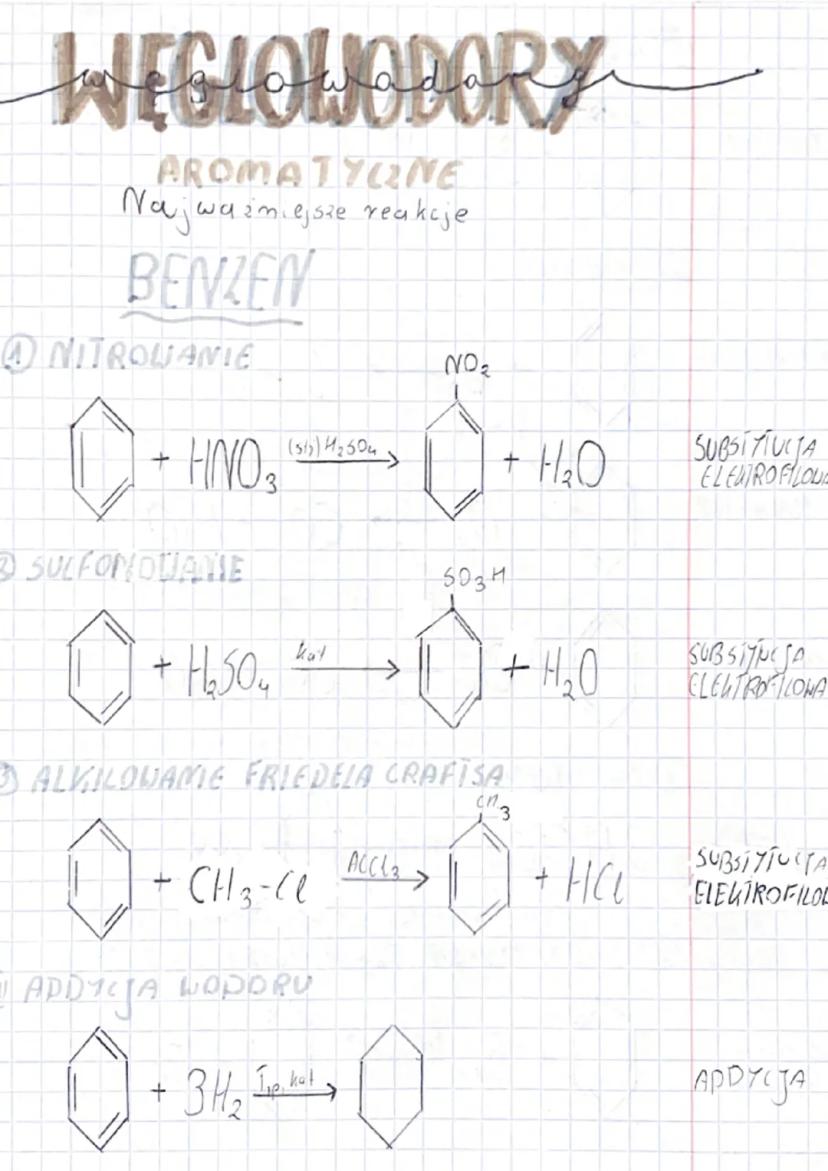 WĘGLOWODORY
węglowodory
AROMATYCZNE
Najważniejsze reakcje
BENZEN
① NITROWANIE
NO₂
+ HNO₃ (stż) H₂SO₄ → + H₂O SUBSTYTUCJA
ELEKTROFILOWA
② SULFONOWANIE
SO₃H
+ H₂SO₄ kat → + H₂O SUBSTYTUCJA
ELEKTROFILOWA
③ ALKILOWANIE FRIEDELA CRAFTSA
CH₃
+ CH₃-Cl AlCl₃ → + HCl SUBSTYTUCJA
ELEKTROFILOW
ADDYCJA WODORU
+ 3H₂ T,p,kat → ADDYCJA